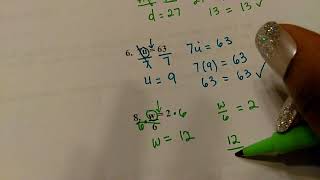 d = 27 13 = 13 ✓
6. 7u = 63 7u = 63
7 7 7(9) = 63
u = 9 63 = 63 ✓
8. 6 · w/6 = 2 · 6 w/6 = 2
w = 12 12